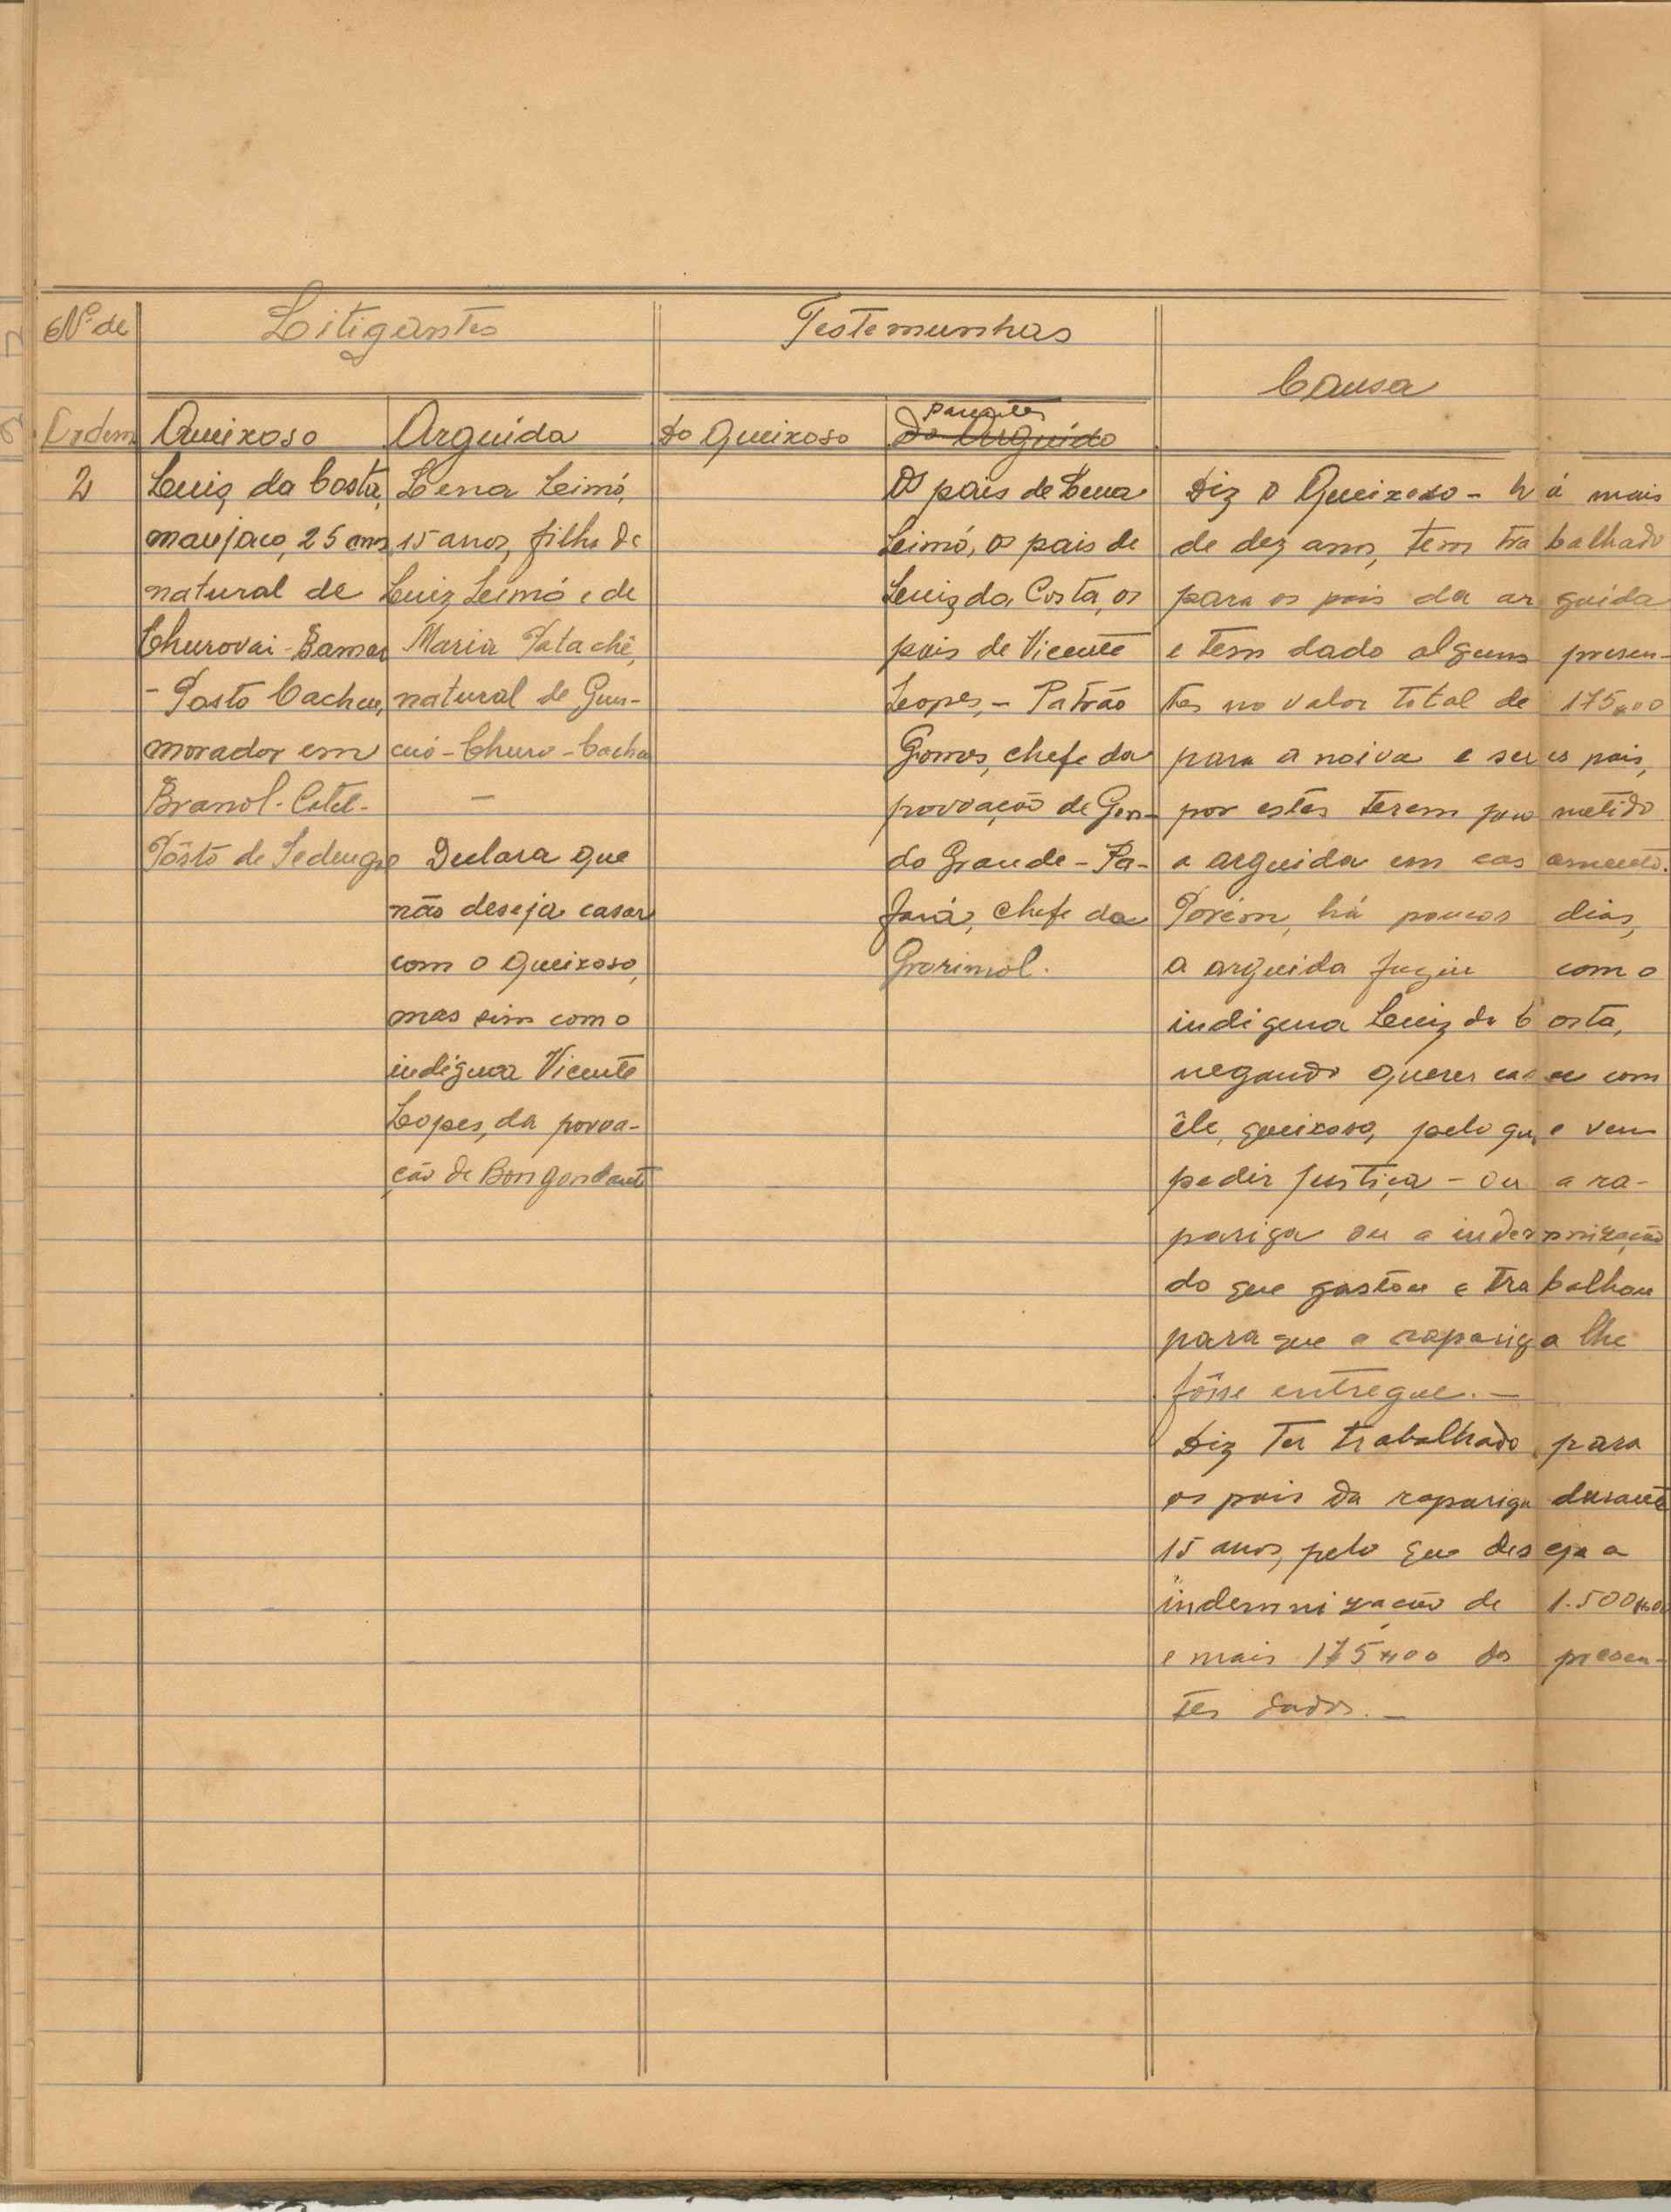 Nº de
Litigantes
Testemunhas
Causa
Ordem
Queixoso
Arguida
Do Queixoso
parentes
Do Arguido
2
Luiz da Costa,
manjaco, 25 anos
natural de
Churovai - Bamar
- Posto Cacheu,
morador em
Branol - Catel -
Pôsto de Sedengo
Lena Leimó,
15 anos, filha de
Luiz Leimó e de
Maria Patachê,
natural de Gun-
cuó - Churo - Cacheu
—
Declara que
não deseja casar
com o queixoso,
mas sim com o
indígena Vicente
Lopes, da povoa-
ção de Bongondanto
Os pais de Lena
Leimó, os pais de
Luiz da Costa, os
pais de Vicente
Lopes, - Patrão
Gomes, chefe da
povoação de Gon-
do Grande - Pa-
fará, chefe da
Grorimol.
Diz o Queixoso - há mais
de dez anos, tem trabalhado
para os pais da arguida
e tem dado alguns presen-
tes no valor total de 175$00
para a noiva e seus pais,
por estes terem prometido
a arguida em casamento.
Porém, há poucos dias,
a arguida fugiu com o
indigena Luiz da Costa,
negando querer casar com
êle, queixoso, pelo que vem
pedir justiça - ou a ra-
pariga ou a indemnização
do que gastou e trabalhou
para que a rapariga lhe
fôsse entregue. —
Diz ter trabalhado para
os pais da rapariga durante
15 anos, pelo que deseja a
indemnização de 1.500$00
e mais 175$00 dos presen-
tes dados. —